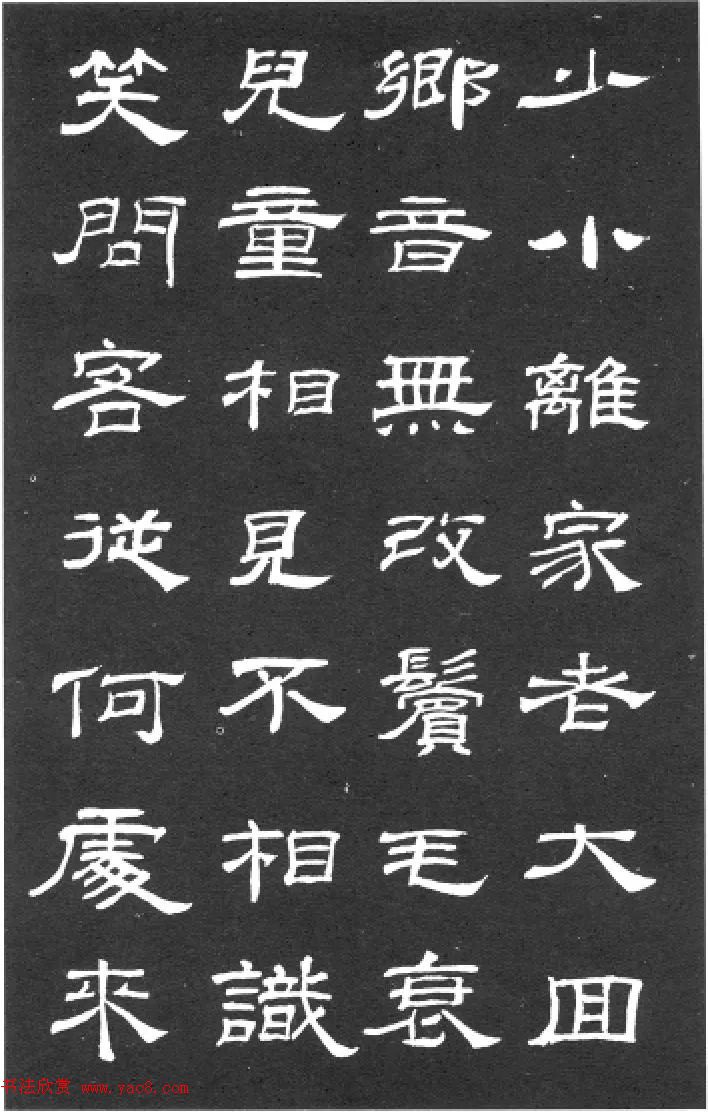 少小離家老大回
鄉音無改鬢毛衰
兒童相見不相識
笑問客從何處來
书法欣赏 www.yac6.com